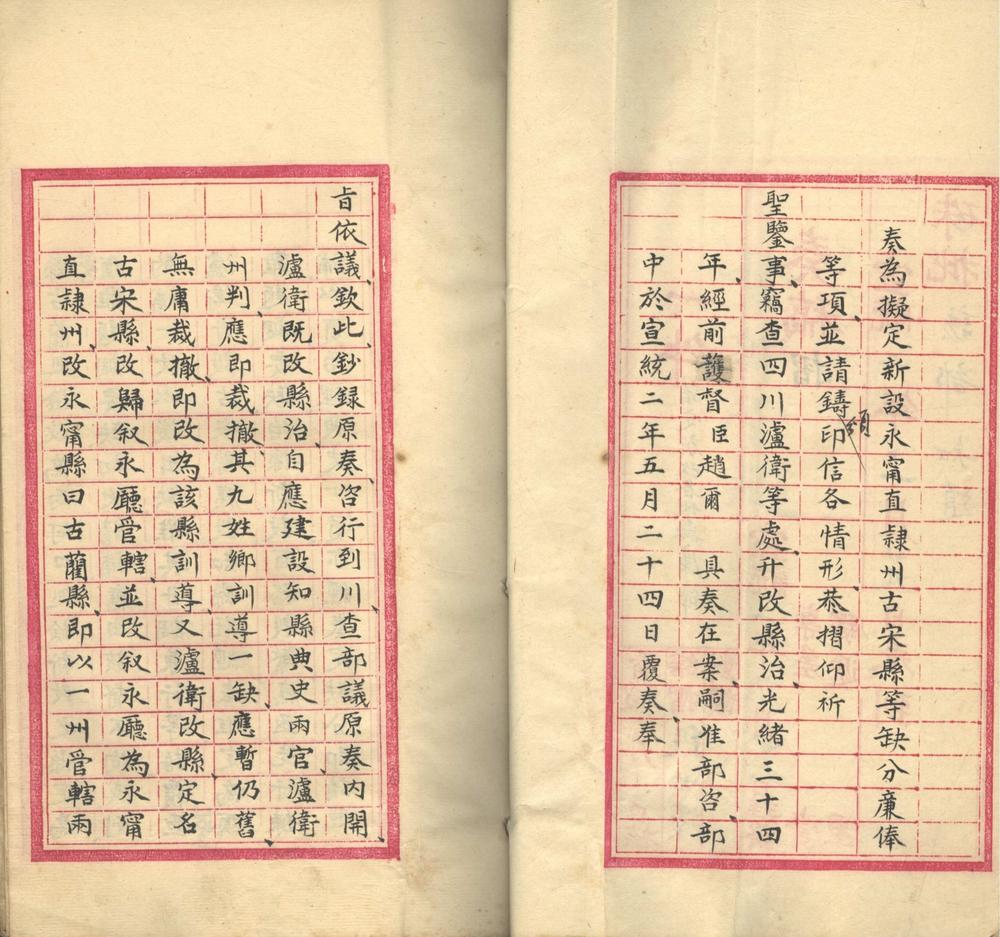 奏為擬定新設永甯直隸州古宋縣等缺分廉俸
等項、並請鑄頒印信各情形、恭摺仰祈
聖鑒事、竊查四川瀘衛等處、升改縣治、光緒三十四
年、經前護督臣趙爾　具奏在案、嗣准部咨、部
中於宣統二年五月二十四日覆奏、奉
旨依議、欽此、鈔録原奏、咨行到川、查部議原奏內開、
瀘衛既改縣治、自應建設知縣典史兩官、瀘衛
州判、應即裁撤、其九姓鄉訓導一缺、應暫仍舊、
無庸裁撤、即改為該縣訓導、又瀘衛改縣、定名
古宋縣、改歸叙永廳管轄、並改叙永廳為永甯
直隸州、改永甯縣曰古藺縣、即以一州管轄兩